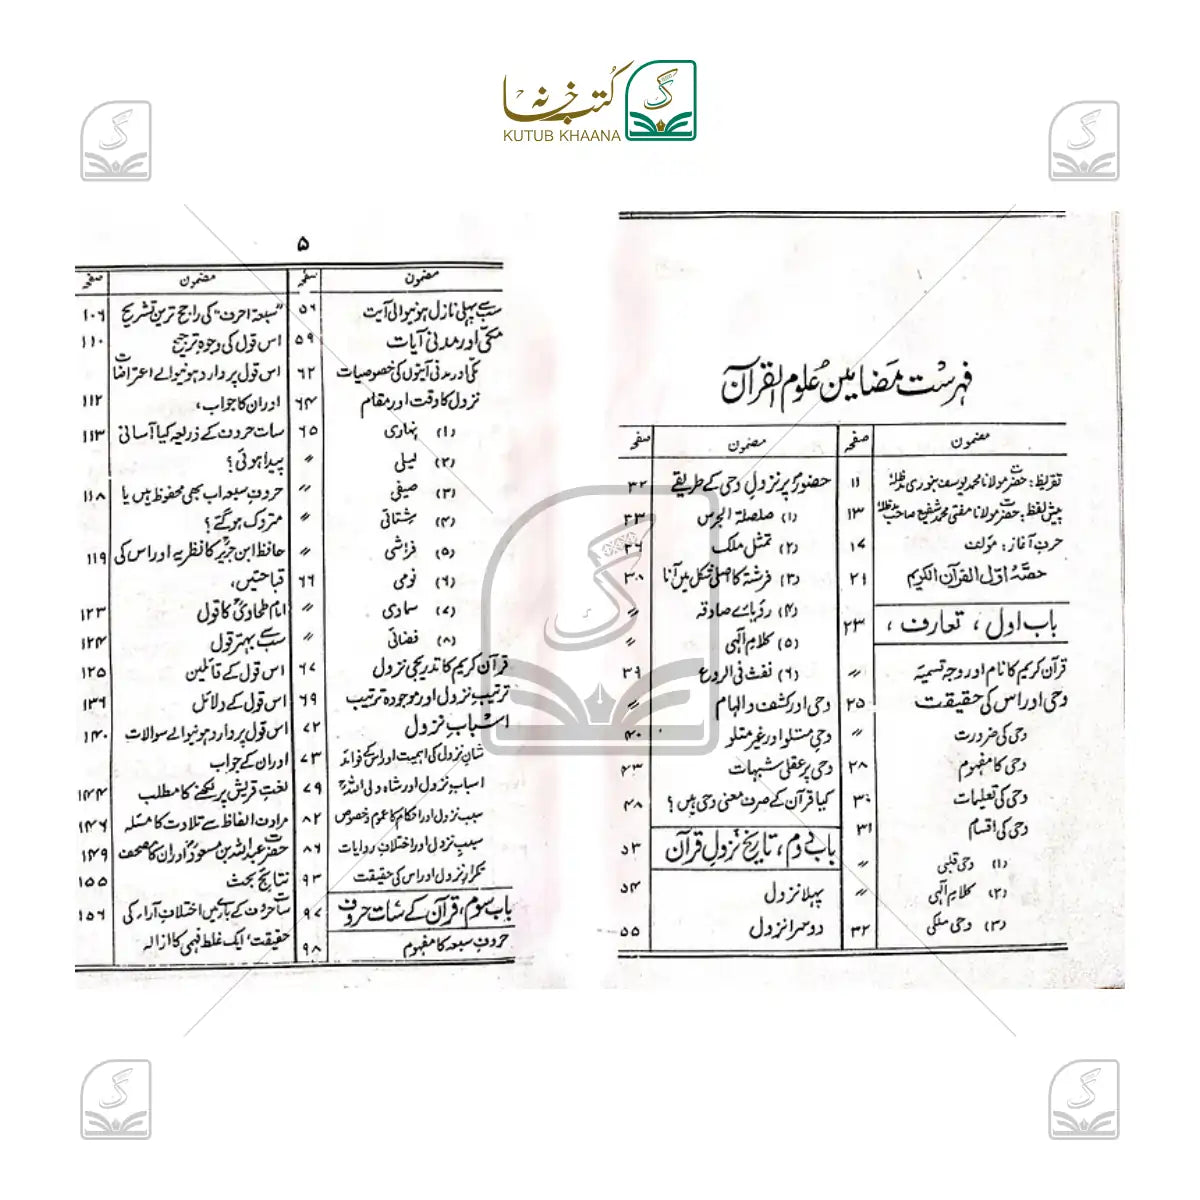 کتب خانہ
KUTUB KHAANA
فہرست مضامین علوم القرآن
مضمون صفحہ
تقریظ: حضرت مولانا محمد یوسف بنوری مدظلہٗ ۱۱
پیش لفظ: حضرت مولانا مفتی محمد شفیع صاحب مدظلہٗ ۱۳
حرفِ آغاز: مؤلف ۱۷
حصّہ اوّل القرآن الکریم ۲۱
باب اول، تعارف، ۲۳
قرآن کریم کا نام اور وجہِ تسمیہ ״
وحی اور اس کی حقیقت ۲۵
وحی کی ضرورت ״
وحی کا مفہوم ۲۸
وحی کی تعلیمات ۳۰
وحی کی اقسام ۳۱
(۱) وحی قلبی ״
(۲) کلامِ الٰہی ״
(۳) وحی ملکی ۳۲
مضمون صفحہ
حضورؐ پر نزولِ وحی کے طریقے ۳۲
(۱) صلصلۃ الجرس ۳۳
(۲) تمثل ملک ۳۶
(۳) فرشتہ کا اصلی شکل میں آنا ۳۸
(۴) رؤیائے صادقہ ״
(۵) کلامِ الٰہی ״
(۶) نفث فی الروع ۳۹
وحی اور کشف و الہام ״
وحی متلو اور غیر متلو ۴۰
وحی پر عقلی شبہات ۴۳
کیا قرآن کے صرف معنی وحی ہیں؟ ۴۸
باب دوم، تاریخ نزولِ قرآن ۵۳
پہلا نزول ۵۴
دوسرا نزول ۵۵
۵
مضمون صفحہ
سب سے پہلی نازل ہونیوالی آیت ۵۶
مکّی اور مدنی آیات ۵۹
مکی اور مدنی آیتوں کی خصوصیات ۶۲
نزول کا وقت اور مقام ۶۴
(۱) نہاری ۶۵
(۲) لیلی ״
(۳) صیفی ״
(۴) شتائی ״
(۵) فراشی ״
(۶) نومی ۶۶
(۷) سماوی ״
(۸) فضائی ״
قرآن کریم کا تدریجی نزول ۶۷
ترتیبِ نزول اور موجودہ ترتیب ۶۹
اسبابِ نزول ۷۲
شانِ نزول کی اہمیت اور اس کے فوائد ۷۳
اسبابِ نزول اور شاہ ولی اللہؒ ۷۹
سببِ نزول اور احکام کا عموم و خصوص ۸۲
سببِ نزول اور اختلافِ روایات ۸۶
تکرارِ نزول اور اس کی حقیقت ۹۳
باب سوم، قرآن کے سات حروف ۹۷
حروفِ سبعہ کا مفہوم ۹۸
مضمون صفحہ
”سبعۃ احرف“ کی راجح ترین تشریح ۱۰۶
اس قول کی وجوہِ ترجیح ۱۱۰
اس قول پر وارد ہونیوالے اعتراضات
اور ان کا جواب، ۱۱۲
سات حروف کے ذریعہ کیا آسانی ۱۱۳
پیدا ہوئی؟
حروفِ سبعہ اب بھی محفوظ ہیں یا ۱۱۸
متروک ہو گئے؟
حافظ ابن جریرؒ کا نظریہ اور اس کی ۱۱۹
قباحتیں،
امام طحاویؒ کا قول ۱۲۳
سب سے بہتر قول ۱۲۴
اس قول کے قائلین ۱۲۵
اس قول کے دلائل ۱۳۶
اس قول پر وارد ہونیوالے سوالات ۱۴۰
اور ان کے جواب
لغتِ قریش پر لکھنے کا مطلب ۱۴۴
مرادف الفاظ سے تلاوت کا مسئلہ ۱۴۶
حضرت عبداللہ بن مسعودؓ اور ان کا مصحف ۱۴۹
نتائجِ بحث ۱۵۵
سات حروف کے بارے میں اختلافِ آراء کی ۱۵۶
حقیقت، ایک غلط فہمی کا ازالہ